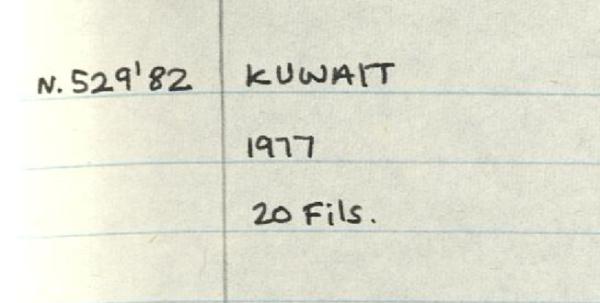 N.529'82 KUWAIT
1977
20 Fils.